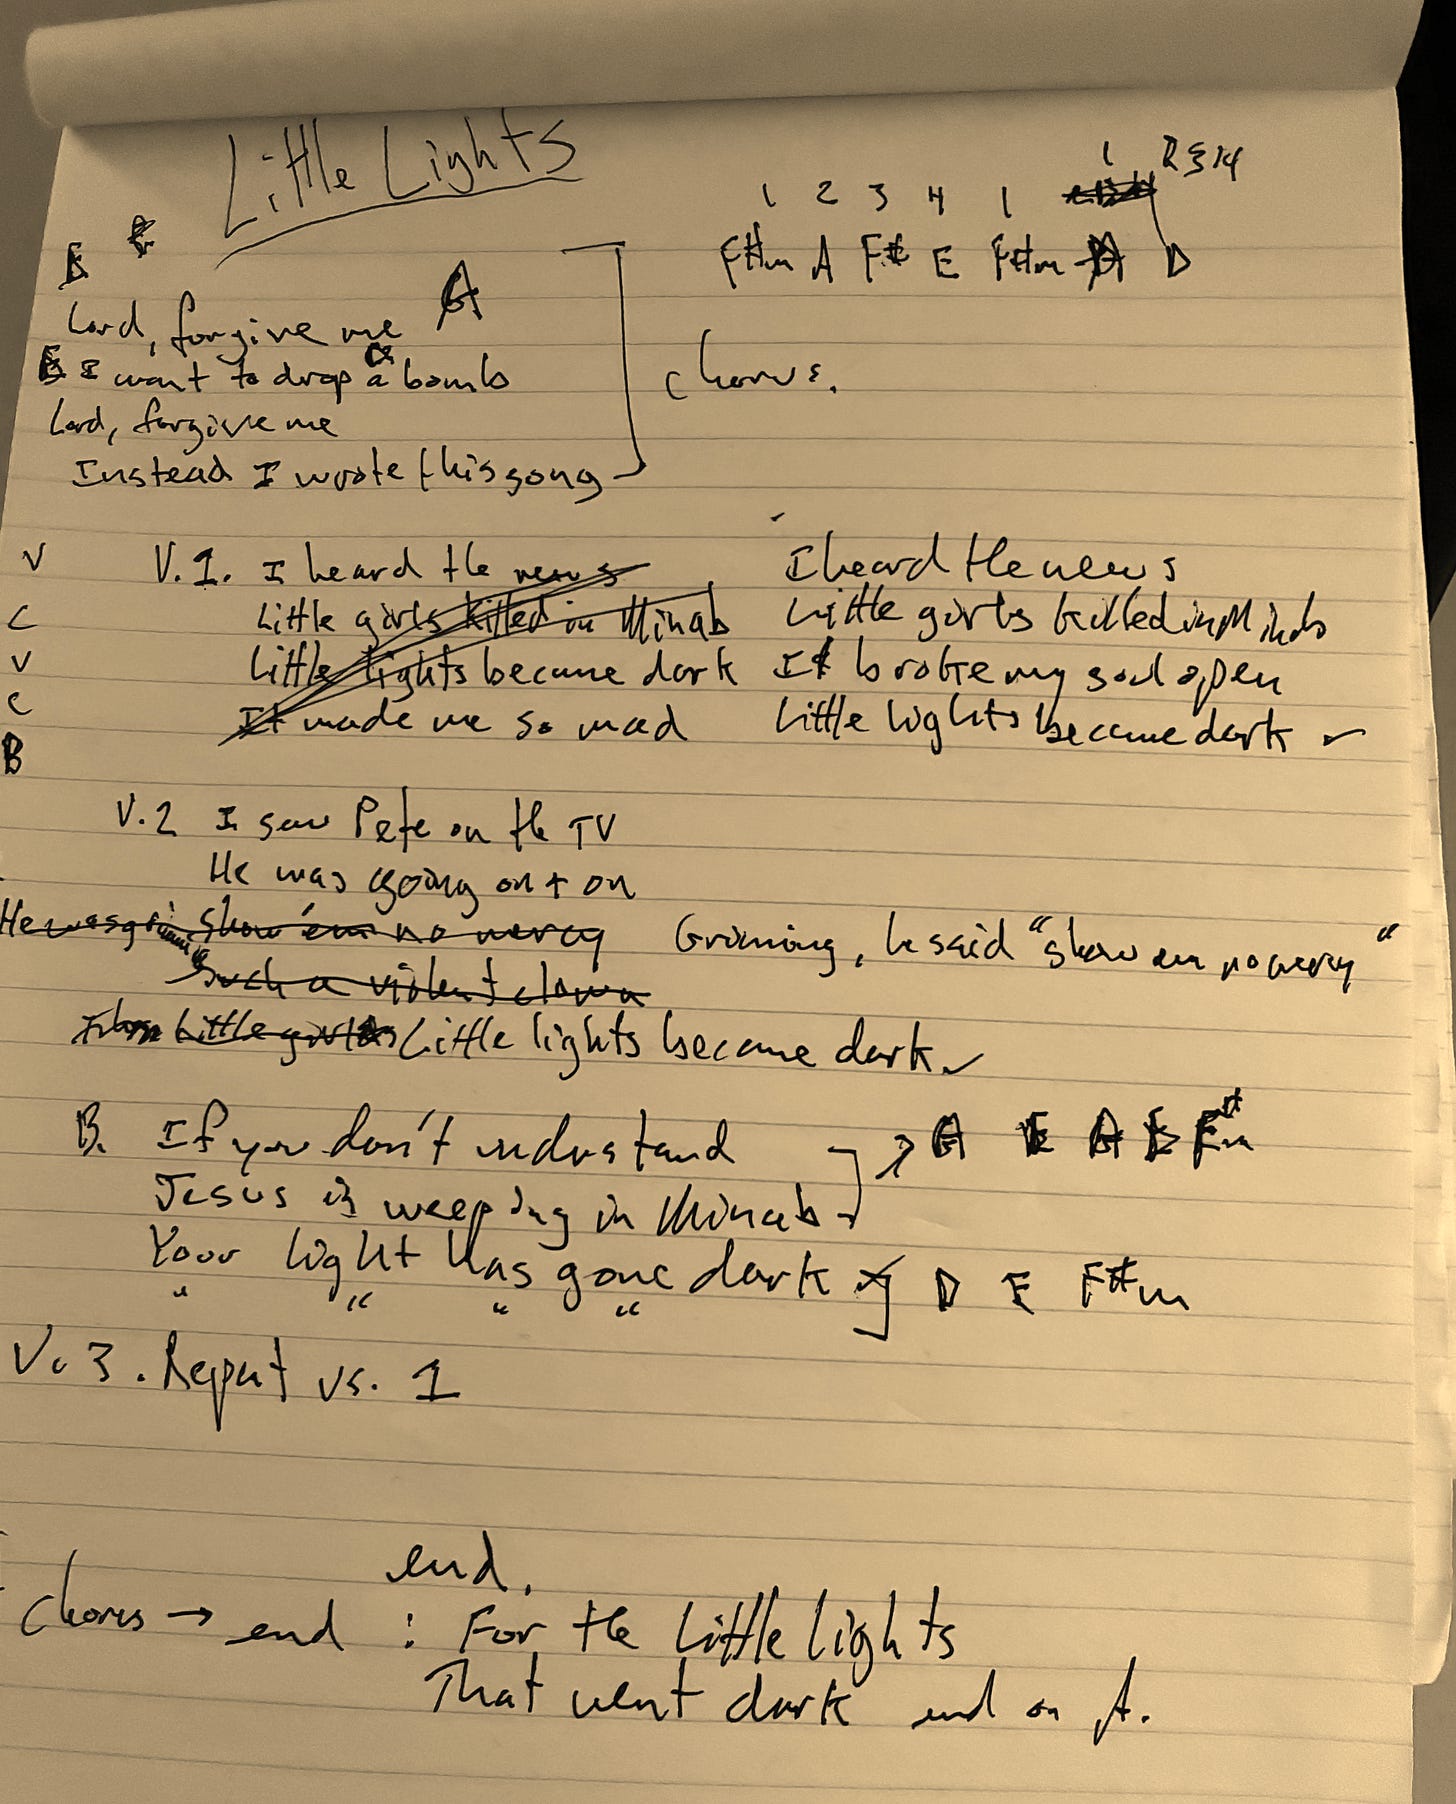 Little Lights
1 2 3 4 1 1 2 3 4
F#m A F# E F#m A D
E E
Lord, forgive me A
I want to drop a bomb
Lord, forgive me
Instead I wrote this song
Chorus.
V V.1. I heard the news I heard the news
C Little girls killed in Minab Little girls killed in Minab
V Little lights became dark It broke my soul open
C It made me so mad Little lights became dark ✓
B
V.2 I saw Pete on the TV
He was going on + on
He was grinning "show 'em no mercy Grinning, he said "show em no mercy"
Such a violent clown
Little girls Little lights became dark ✓
B. If you don't understand A E A E F#m
Jesus is weeping in Minab
Your light has gone dark D E F#m
" " " "
V. 3. Repeat vs. 1
end.
Chorus → end : For the Little lights
That went dark end on A.